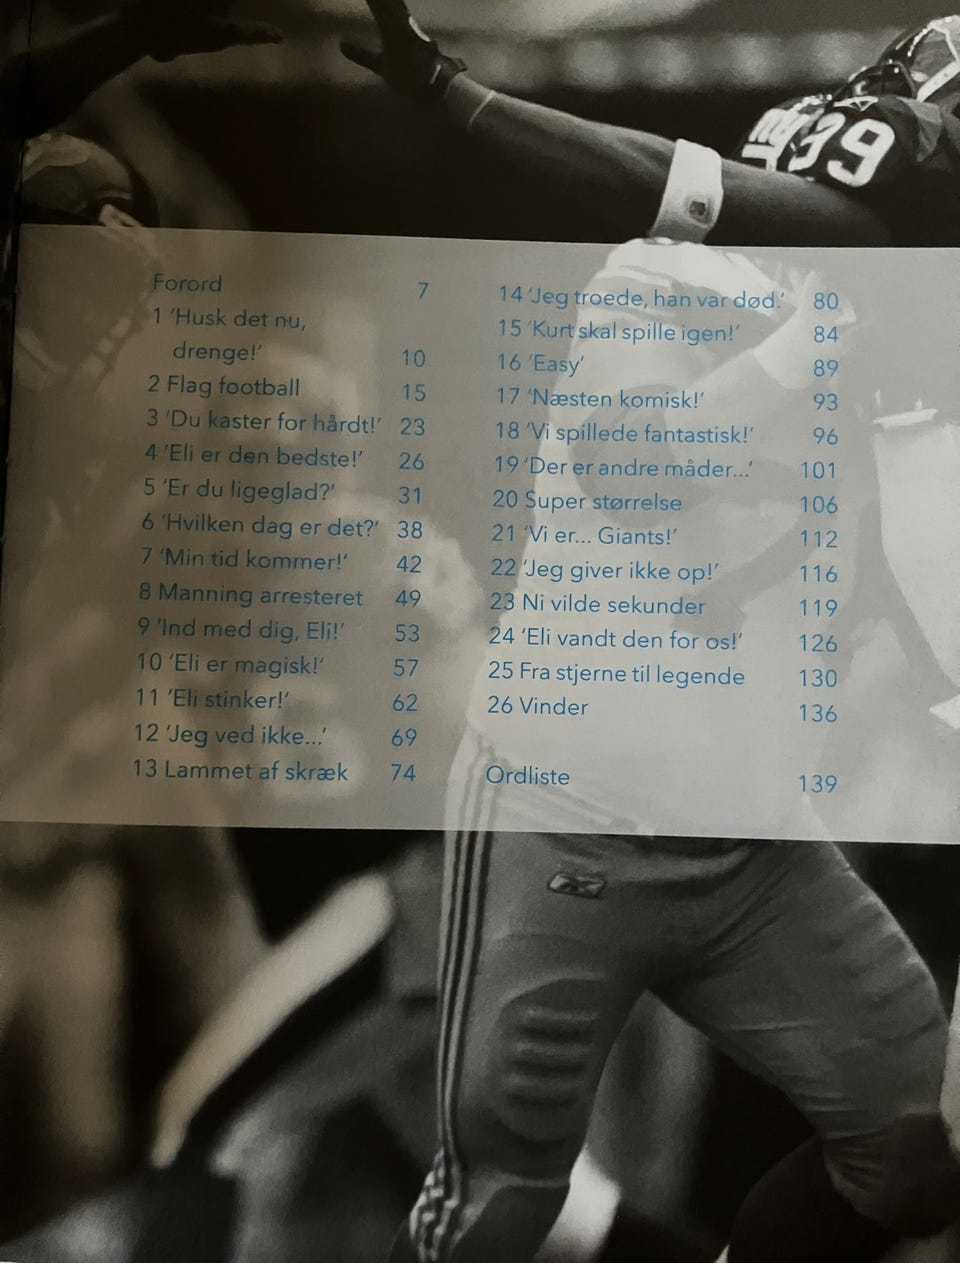 ny 39
Forord 7
1 ‘Husk det nu,
drenge!‘ 10
2 Flag football 15
3 ‘Du kaster for hårdt!‘ 23
4 ‘Eli er den bedste!‘ 26
5 ‘Er du ligeglad?‘ 31
6 ‘Hvilken dag er det?‘ 38
7 ‘Min tid kommer!‘ 42
8 Manning arresteret 49
9 ‘Ind med dig, Eli!‘ 53
10 ‘Eli er magisk!‘ 57
11 ‘Eli stinker!‘ 62
12 ‘Jeg ved ikke...‘ 69
13 Lammet af skræk 74
14 ‘Jeg troede, han var død.‘ 80
15 ‘Kurt skal spille igen!‘ 84
16 ‘Easy‘ 89
17 ‘Næsten komisk!‘ 93
18 ‘Vi spillede fantastisk!‘ 96
19 ‘Der er andre måder...‘ 101
20 Super størrelse 106
21 ‘Vi er... Giants!‘ 112
22 ‘Jeg giver ikke op!‘ 116
23 Ni vilde sekunder 119
24 ‘Eli vandt den for os!‘ 126
25 Fra stjerne til legende 130
26 Vinder 136
Ordliste 139